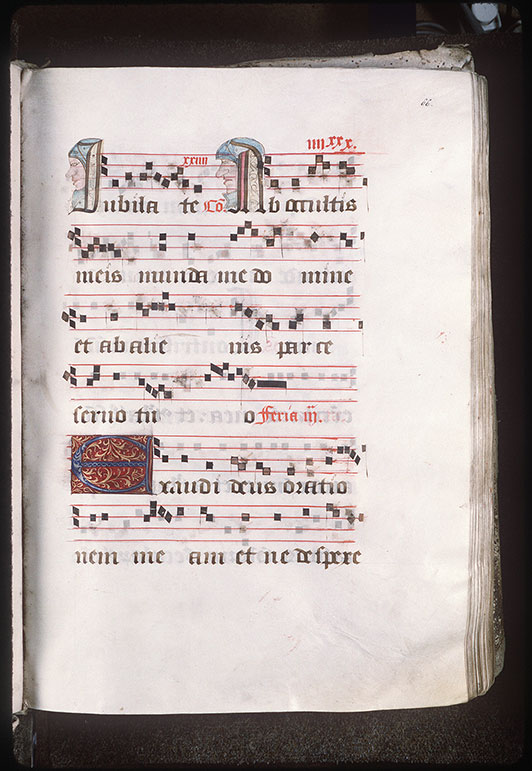 66.
iiii xxx.
xxiiii
Jubila te Cō Ab occultis
meis munda me do mine
et ab alie nis par ce
seruo tu o Feria iij.
Exaudi deus oratio
nem me am et ne despexe